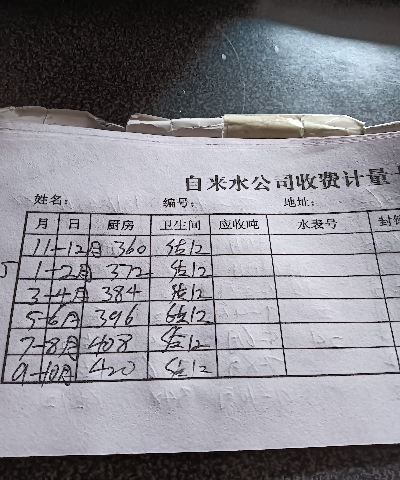 自来水公司收费计量
姓名: 编号: 地址:
月 日 厨房 卫生间 应收吨 水表号 封
11-12月 360 结12
5 1-2月 372 结12
3-4月 384 结12
5-6月 396 结12
7-8月 408 结12
9-10月 420 结12